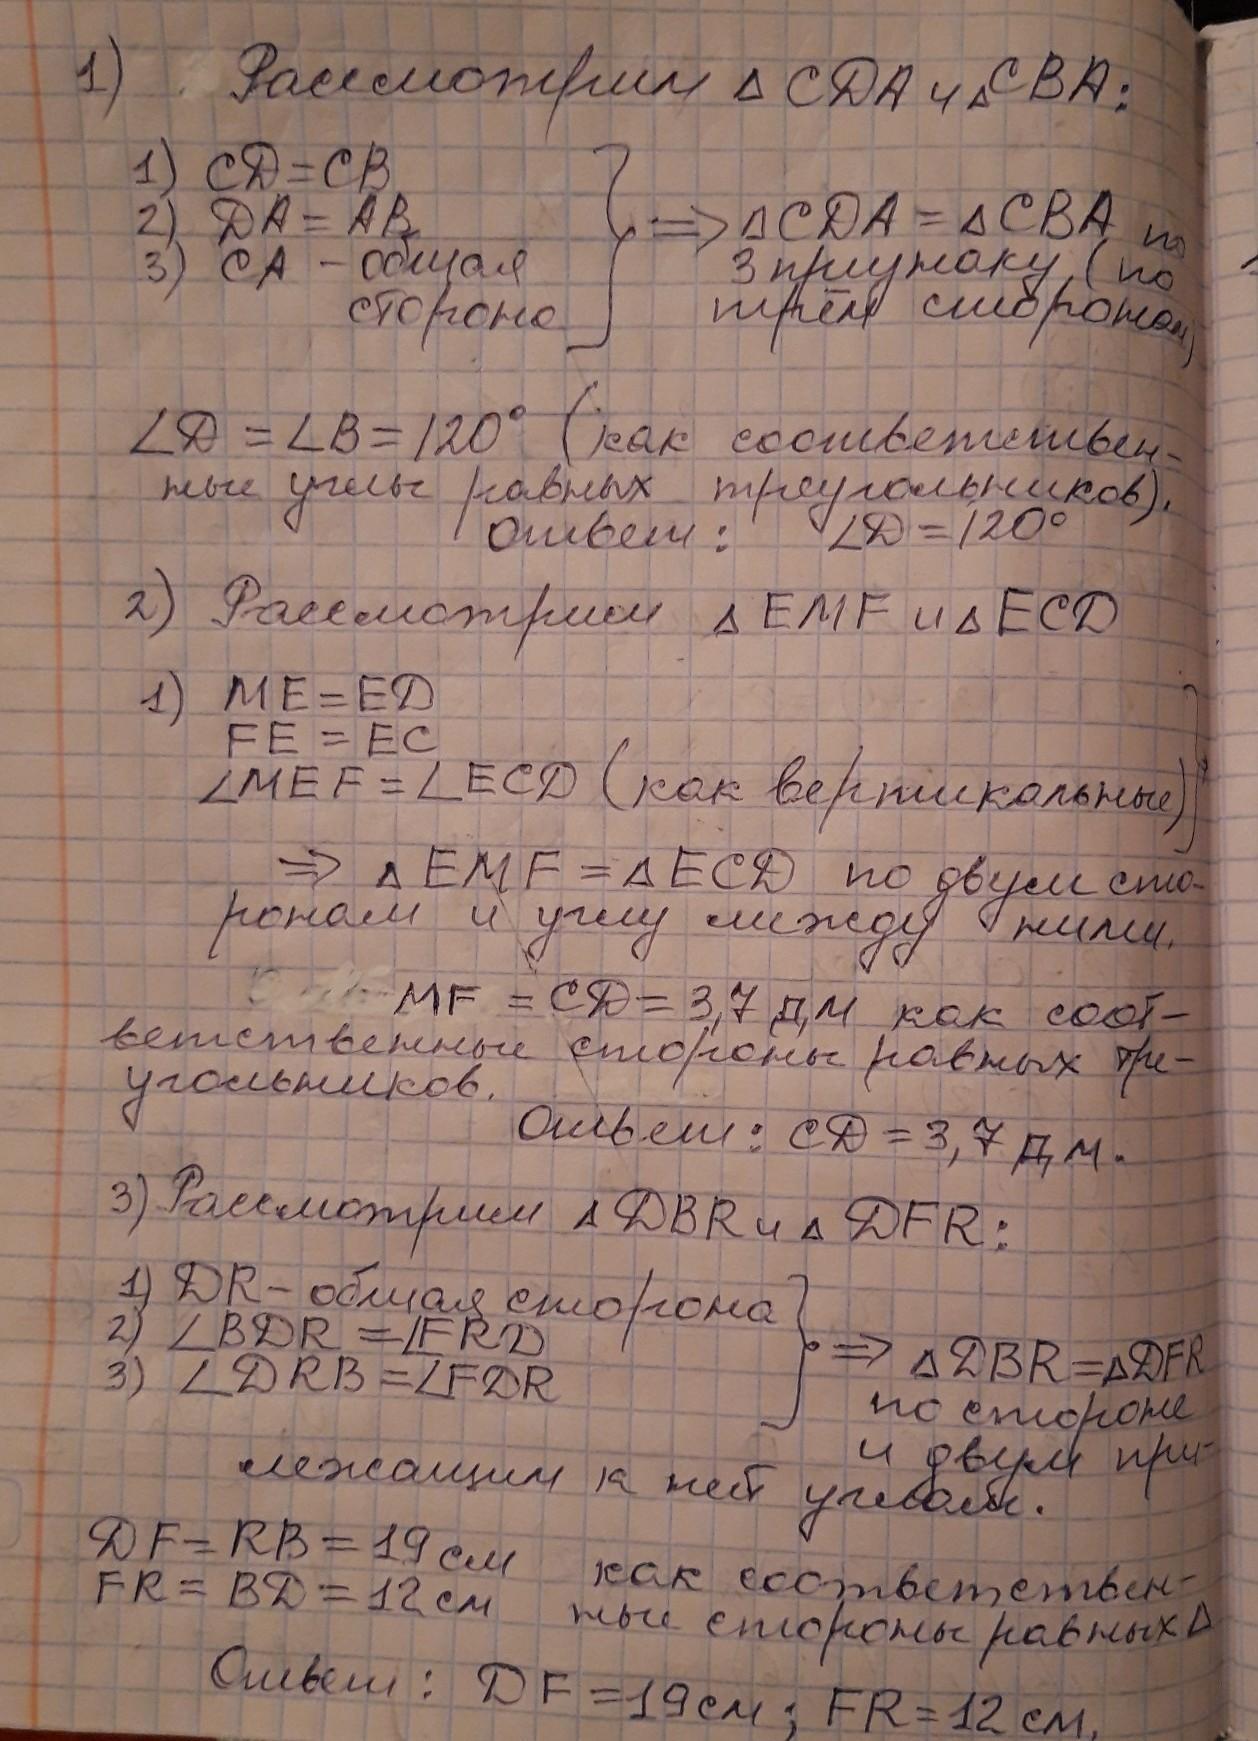 1) Рассмотрим △ CDA и △ CBA:
1) CD = CB
2) DA = AB
3) CA - общая
сторона
=> △ CDA = △ CBA по
3 признаку (по
трём сторонам)
∠D = ∠B = 120° (как соответствен-
ные углы равных треугольников).
Ответ: ∠D = 120°
2) Рассмотрим △ EMF и △ ECD
1) ME = ED
FE = EC
∠MEF = ∠ECD (как вертикальные)
=> △ EMF = △ ECD по двум сто-
ронам и углу между ними.
MF = CD = 3,7 дм как соот-
ветственные стороны равных тре-
угольников.
Ответ: CD = 3,7 дм.
3) Рассмотрим △ DBR и △ DFR:
1) DR - общая сторона
2) ∠BDR = ∠FRD
3) ∠DRB = ∠FDR
=> △ DBR = △ DFR
по стороне
и двум при-
лежащим к ней углам.
DF = RB = 19 см
FR = BD = 12 см
как соответствен-
ные стороны равных △
Ответ: DF = 19 см; FR = 12 см.